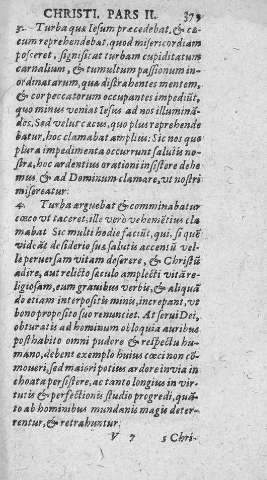 CHRISTI. PARS II. 379
3. Turba quæ Iesum præcedebat, & cæ-
cum reprehendebat, quod misericordiam
posceret, significat turbam cupiditatum
carnalium, & tumultum passionum in-
ordinatarum, quæ distrahentes mentem,
& cor peccatorum occupantes impediũt,
quo minus veniat Iesus ad nos illuminã-
dos. Sed velut cæcus, quo plus reprehende
batur, hoc clamabat amplius: Sic nos quo
plura impedimenta occurrunt saluti no-
stra, hoc ardentius orationi insistere debe
mus, & ad Dominum clamare, ut nostri
misereatur:
4. Turba arguebat & comminabatur
cæco vt taceret; ille verò vehemẽtius cla
mabat Sic multi hodie faciũt, qui, si quẽ
vidẽat desiderio suæ salutis accensũ vel-
le peruersam vitam deserere, & Christũ
adire, aut relicto sæculo amplecti vitã re-
ligiosam, eum grauibus verbis, & aliquã
do etiam interpositis minis, increpant, vt
bono proposito suo renunciet. At serui Dei,
obturatis ad hominum obloquia auribus
posthabito omni pudore & respectu hu-
mano, debent exemplo huius cœci non cõ
moueri, sed maiori potius ardore in via in
choata persistere, ac tanto longius in vir-
tutis & perfectionis studio progredi, quã-
to ab hominibus mundanis magis deter-
rentur, & retrahuntur:
V 7 5 Chri-